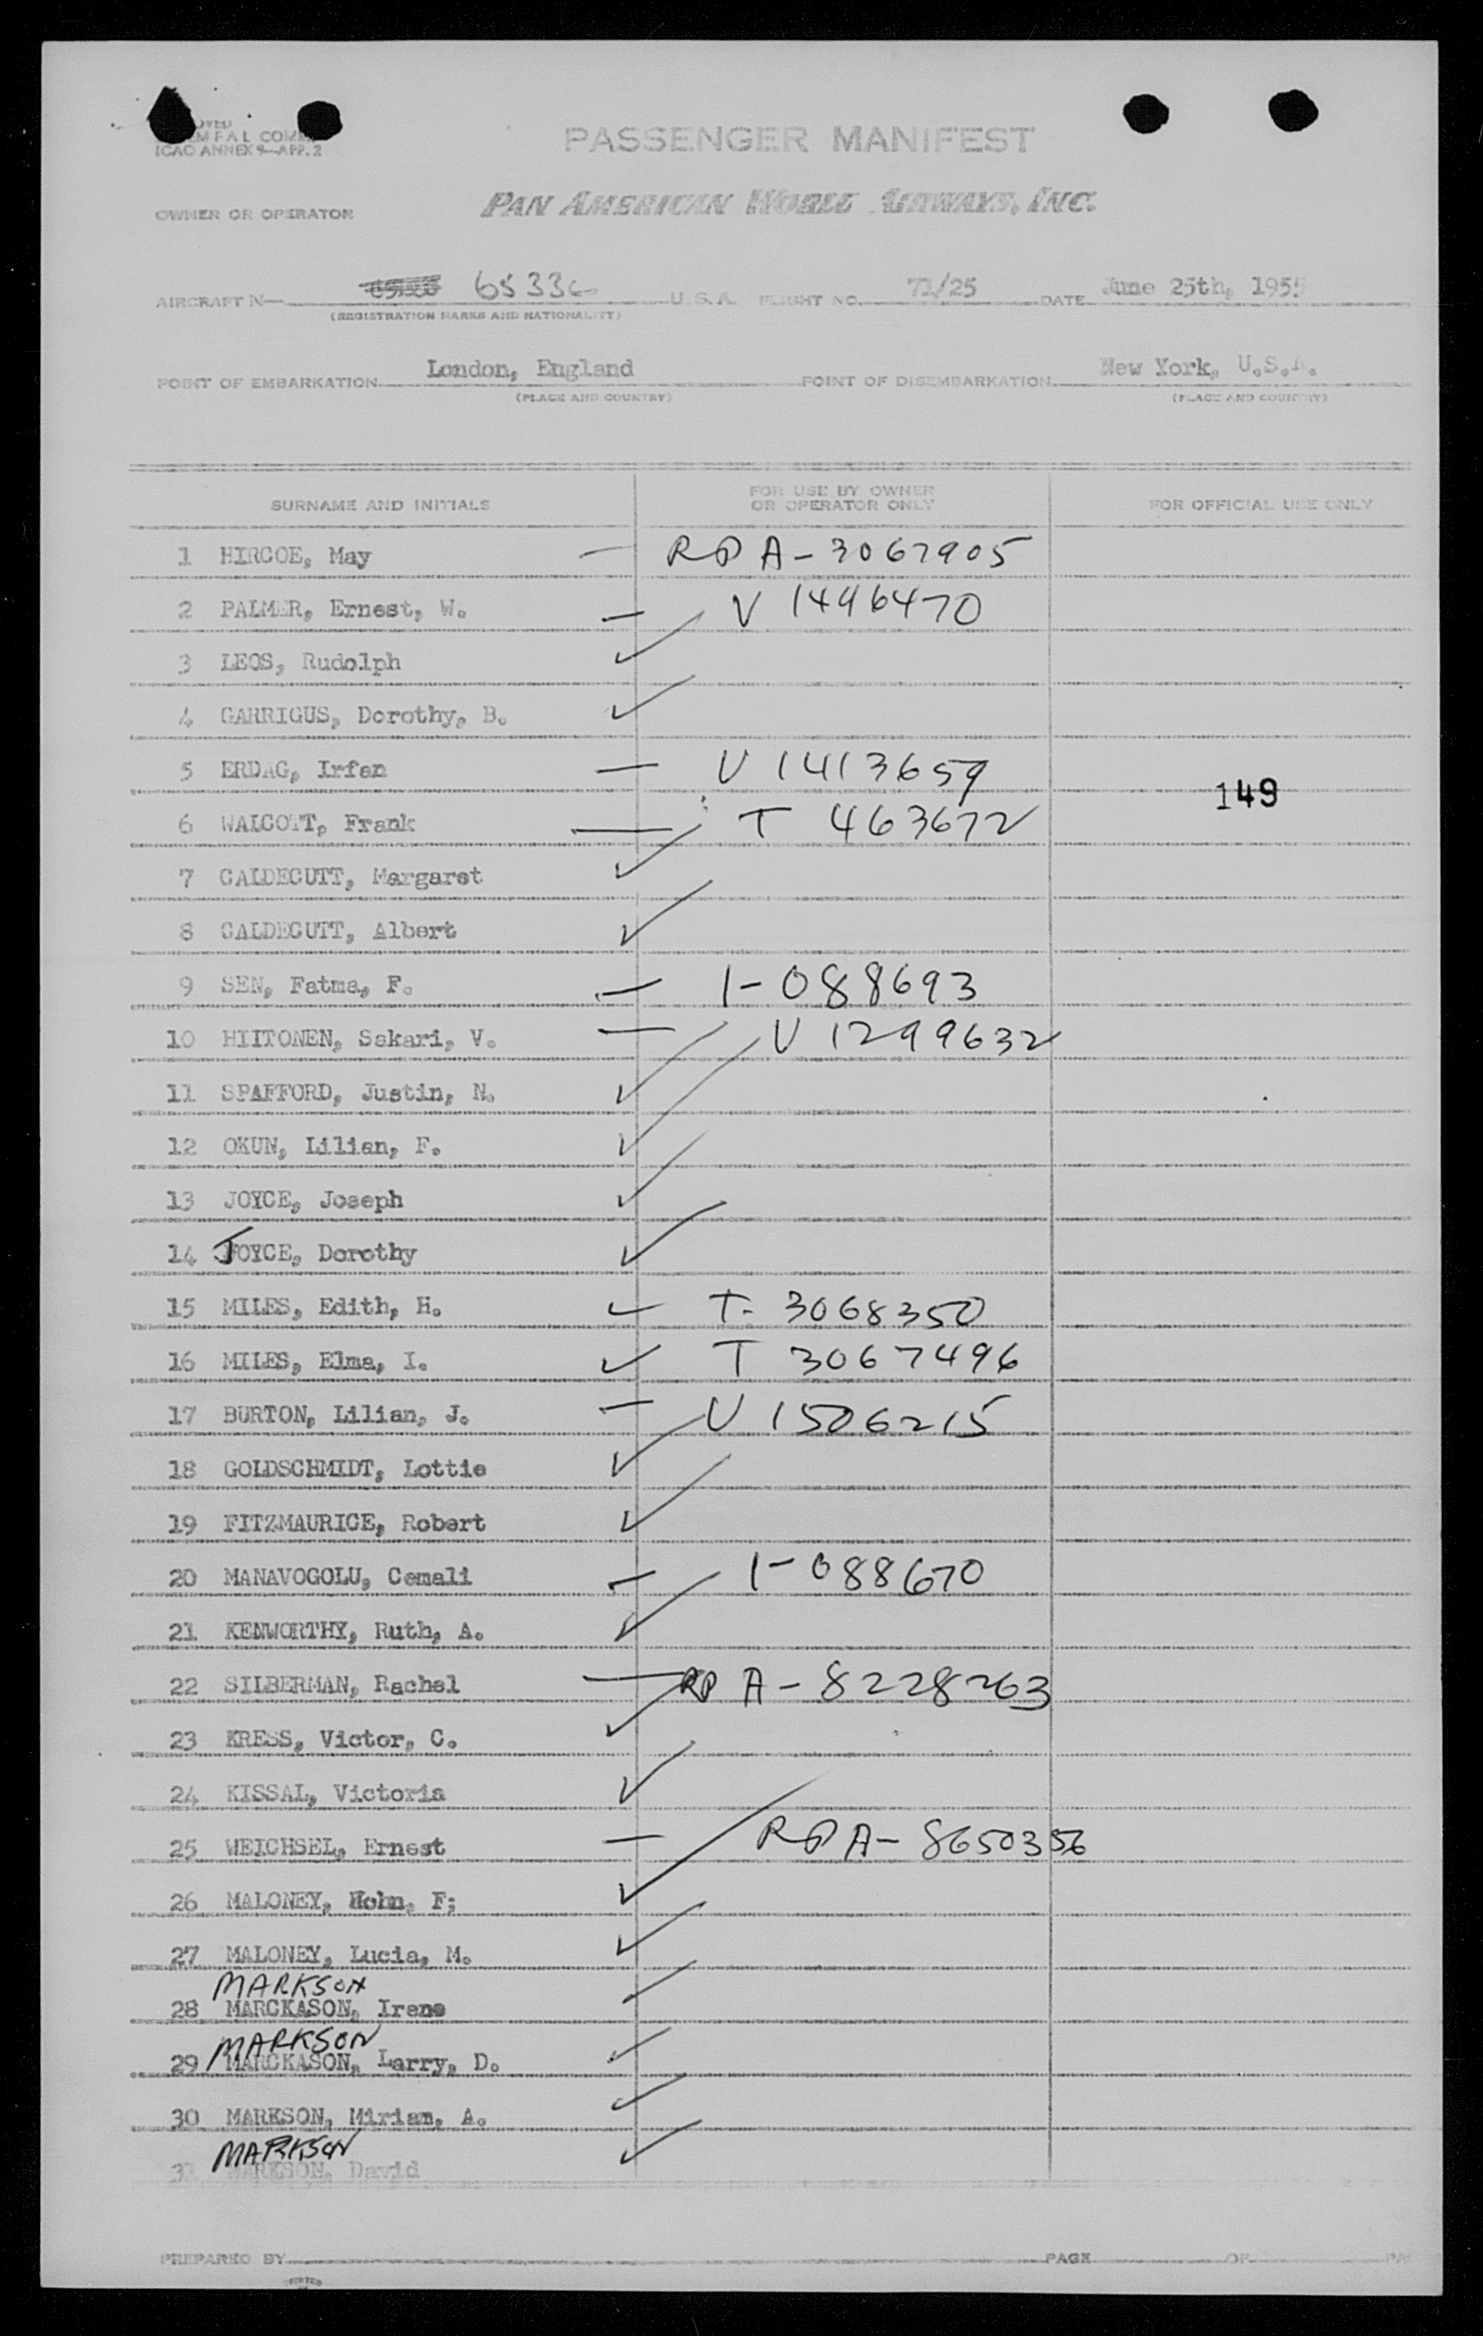 ICAO ANNEX 9—APP. 2
PASSENGER MANIFEST
OWNER OR OPERATOR PAN AMERICAN WORLD AIRWAYS, INC.
AIRCRAFT N— 65336 U.S.A. FLIGHT NO. 71/25 DATE June 25th, 1955
(REGISTRATION MARKS AND NATIONALITY)
POINT OF EMBARKATION London, England POINT OF DISEMBARKATION New York, U.S.A.
(PLACE AND COUNTRY) (PLACE AND COUNTRY)
SURNAME AND INITIALS FOR USE BY OWNER OR OPERATOR ONLY FOR OFFICIAL USE ONLY
1 HIRCOE, May — RP A-3067905
2 PALMER, Ernest, W. — V 1496470
3 LEOS, Rudolph ✓
4 GARRIGUS, Dorothy, B. ✓
5 ERDAG, Irfan — V 1413659
149
6 WALCOTT, Frank — T 463672
7 CALDECUTT, Margaret ✓
8 CALDECUTT, Albert ✓
9 SEN, Fatma, F. — I-088693
10 HIITONEN, Sakari, V. — V 1299632
11 SPAFFORD, Justin, N. ✓
12 OKUN, Lilian, F. ✓
13 JOYCE, Joseph ✓
14 JOYCE, Dorothy ✓
15 MILES, Edith, H. ✓ T. 3068350
16 MILES, Elma, I. ✓ T 3067496
17 BURTON, Lilian, J. — V 1506215
18 GOLDSCHMIDT, Lottie ✓
19 FITZMAURICE, Robert ✓
20 MANAVOGOLU, Cemali — I-088670
21 KENWORTHY, Ruth, A. ✓
22 SILBERMAN, Rachel — RP A-8228263
23 KRESS, Victor, C. ✓
24 KISSAL, Victoria ✓
25 WEICHSEL, Ernest — RP A-8650356
26 MALONEY, Hohn, F; ✓
27 MALONEY, Lucia, M. ✓
MARKSON
28 MARCKASON, Irene ✓
MARKSON
29 MARCKASON, Larry, D. ✓
30 MARKSON, Mirian, A. ✓
MARKSON
31 MARKSON, David ✓
PREPARED BY PAGE OF